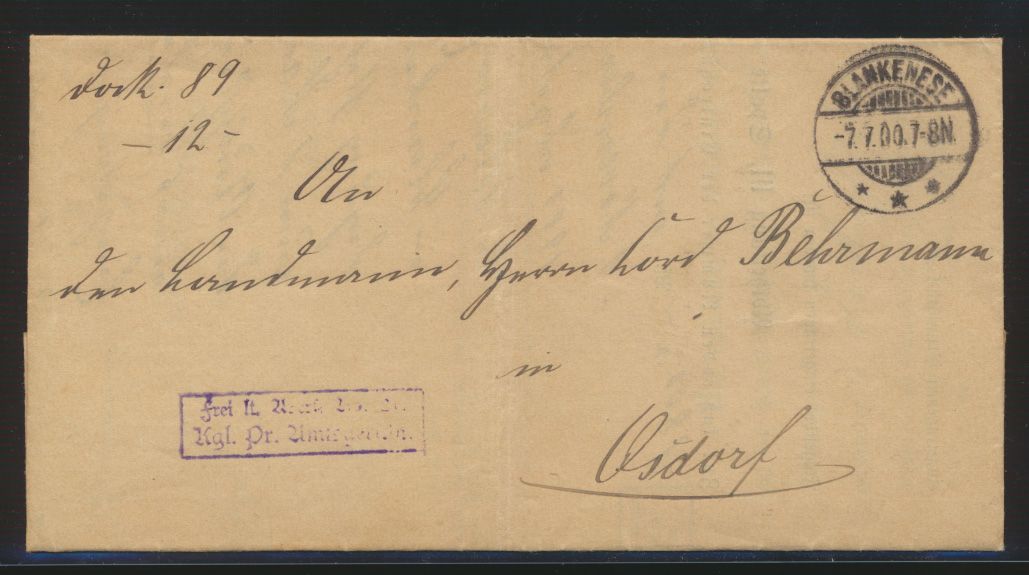 89
12
An
BLANKENESE
-7.7.00.7-8N.
den Landmann, Herrn Cord Behrmann
in
Frei lt.
Kgl. Pr. Amtsgericht.
Osdorf